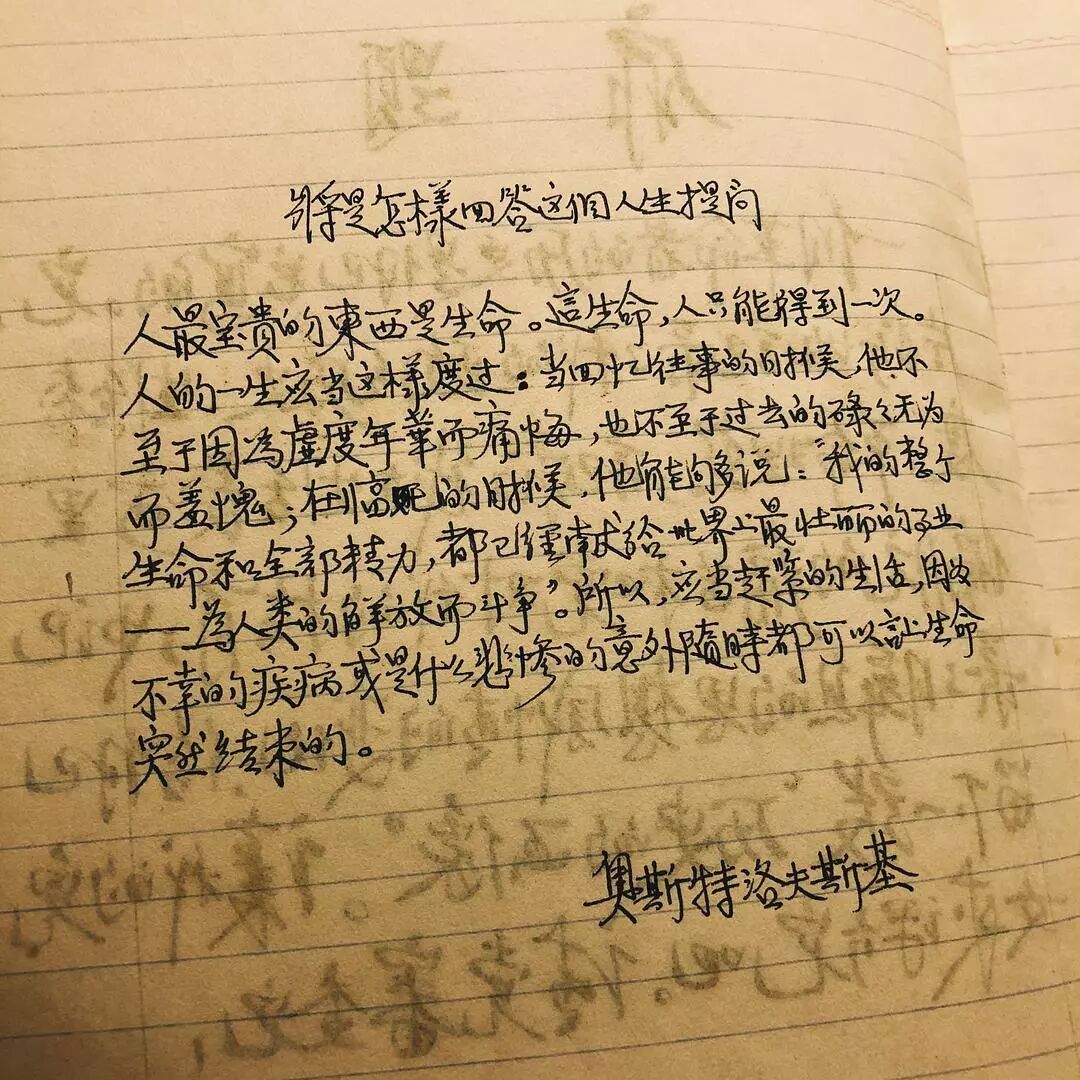 將是怎樣回答这個人生提问
人最宝貴的東西是生命。這生命，人只能得到一次。
人的一生应当这样度过：当回忆往事的时候，他不
至于因為虛度年華而痛悔，也不至于过去的碌々无为
而羞愧；在临死的时候，他能够多说：“我的整个
生命和全部精力，都已經献給世界上最壮丽的事业
——為人类的解放而斗争”。所以，应当赶紧的生活，因为
不幸的疾病或是什么悲惨的意外隨時都可以让生命
突然结束的。
奥斯特洛夫斯基